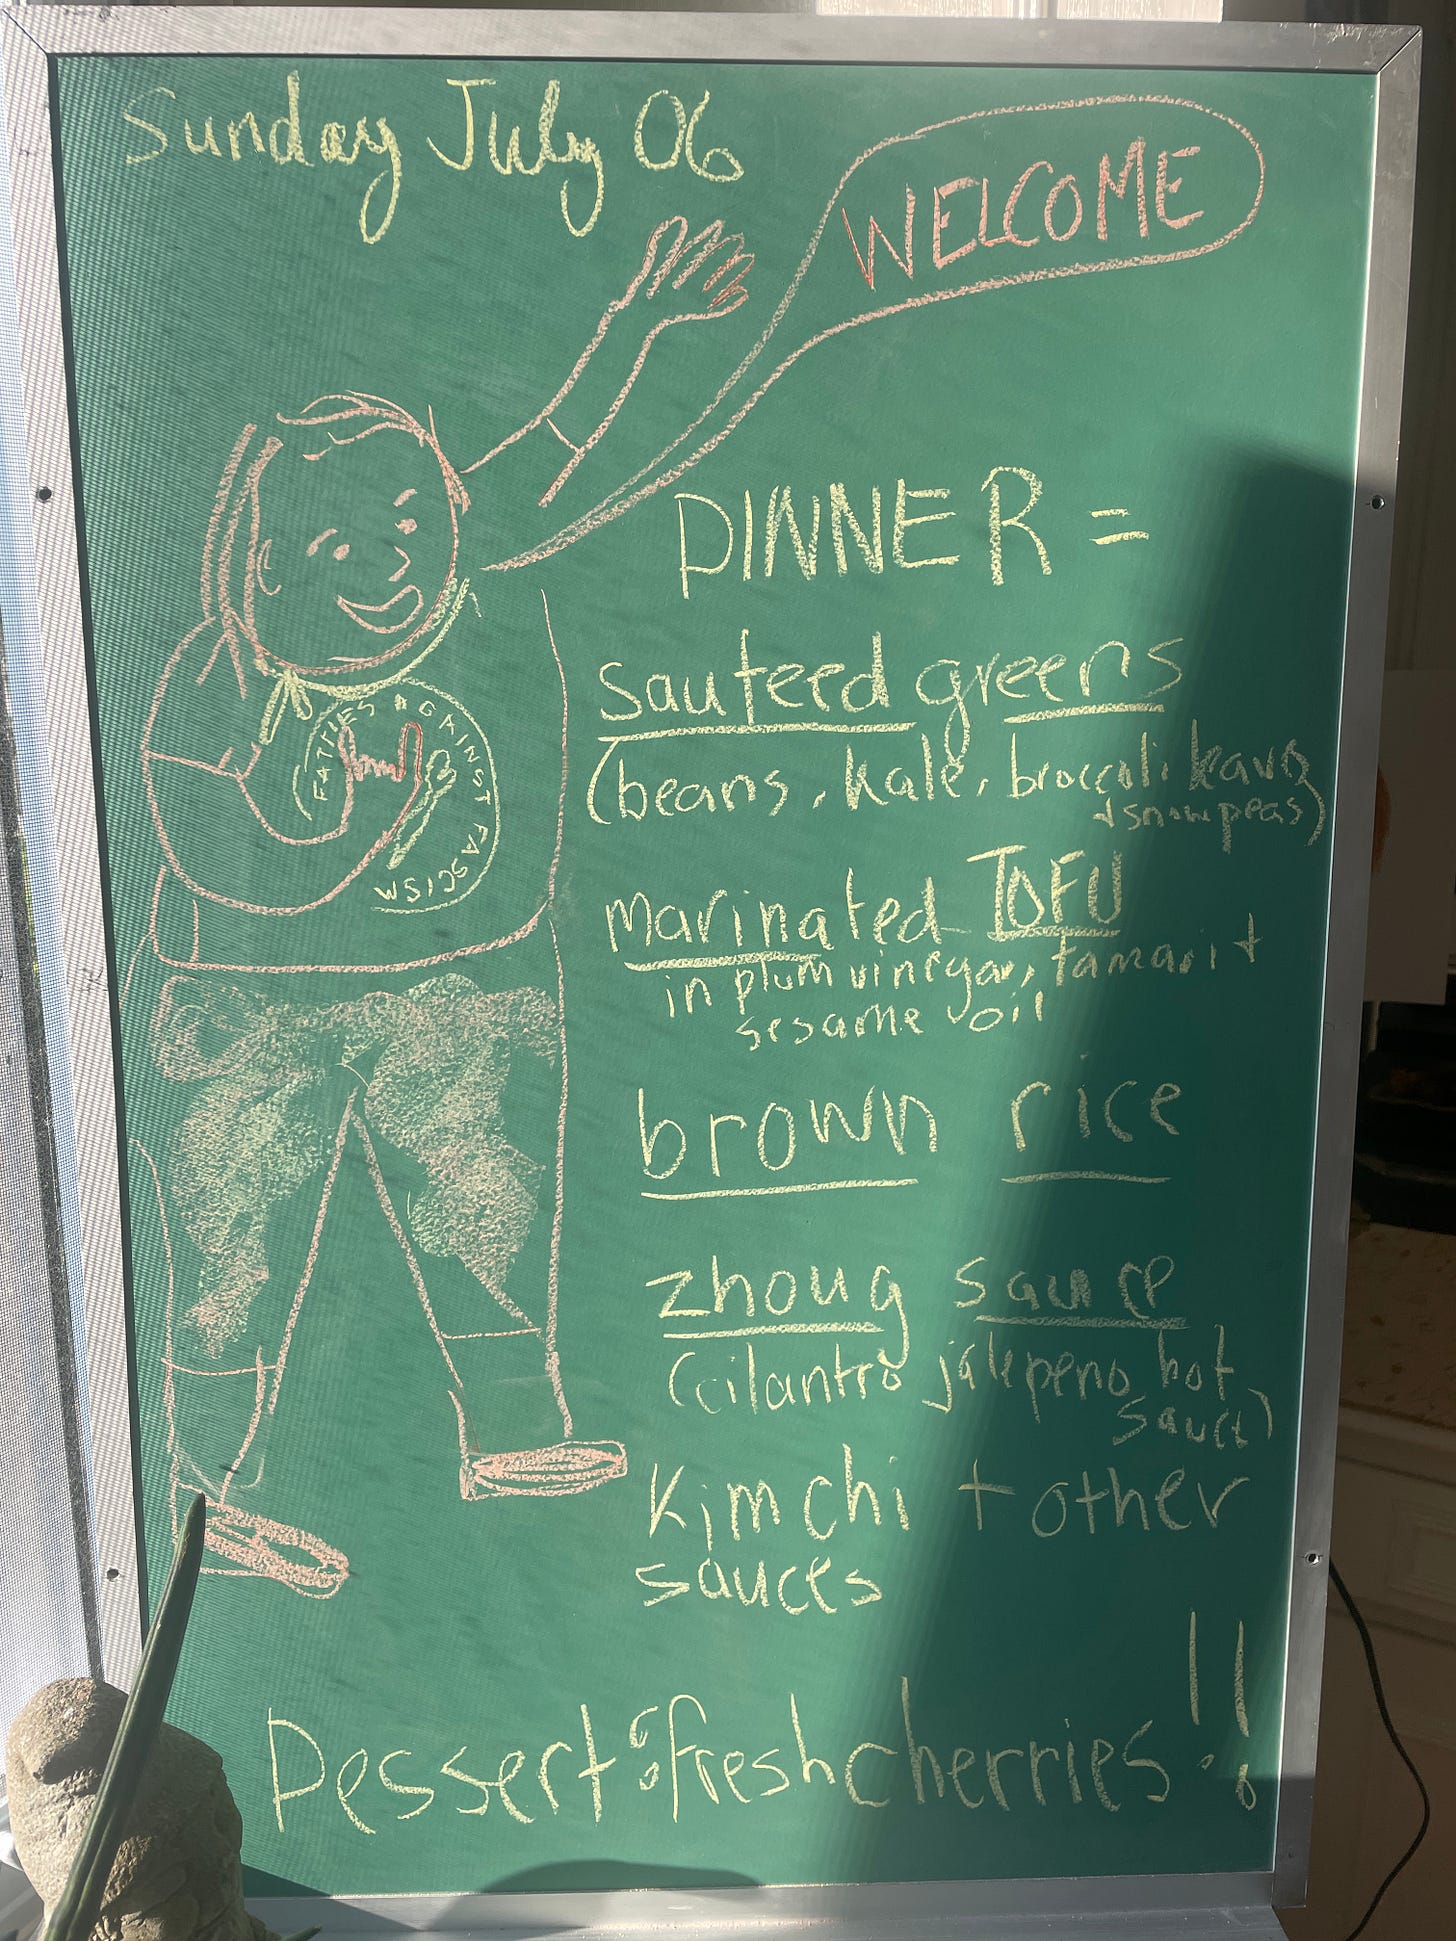 Sunday July 06
WELCOME
DINNER =
sauteed greens
(beans, kale, broccoli leaves
+ snow peas)
marinated TOFU
in plum vinegar, tamari +
sesame oil
brown rice
zhoug sauce
(cilantro jalepeno hot
sauce)
Kimchi + other
sauces
Dessert: fresh cherries!!
FATTIES AGAINST FASCISM